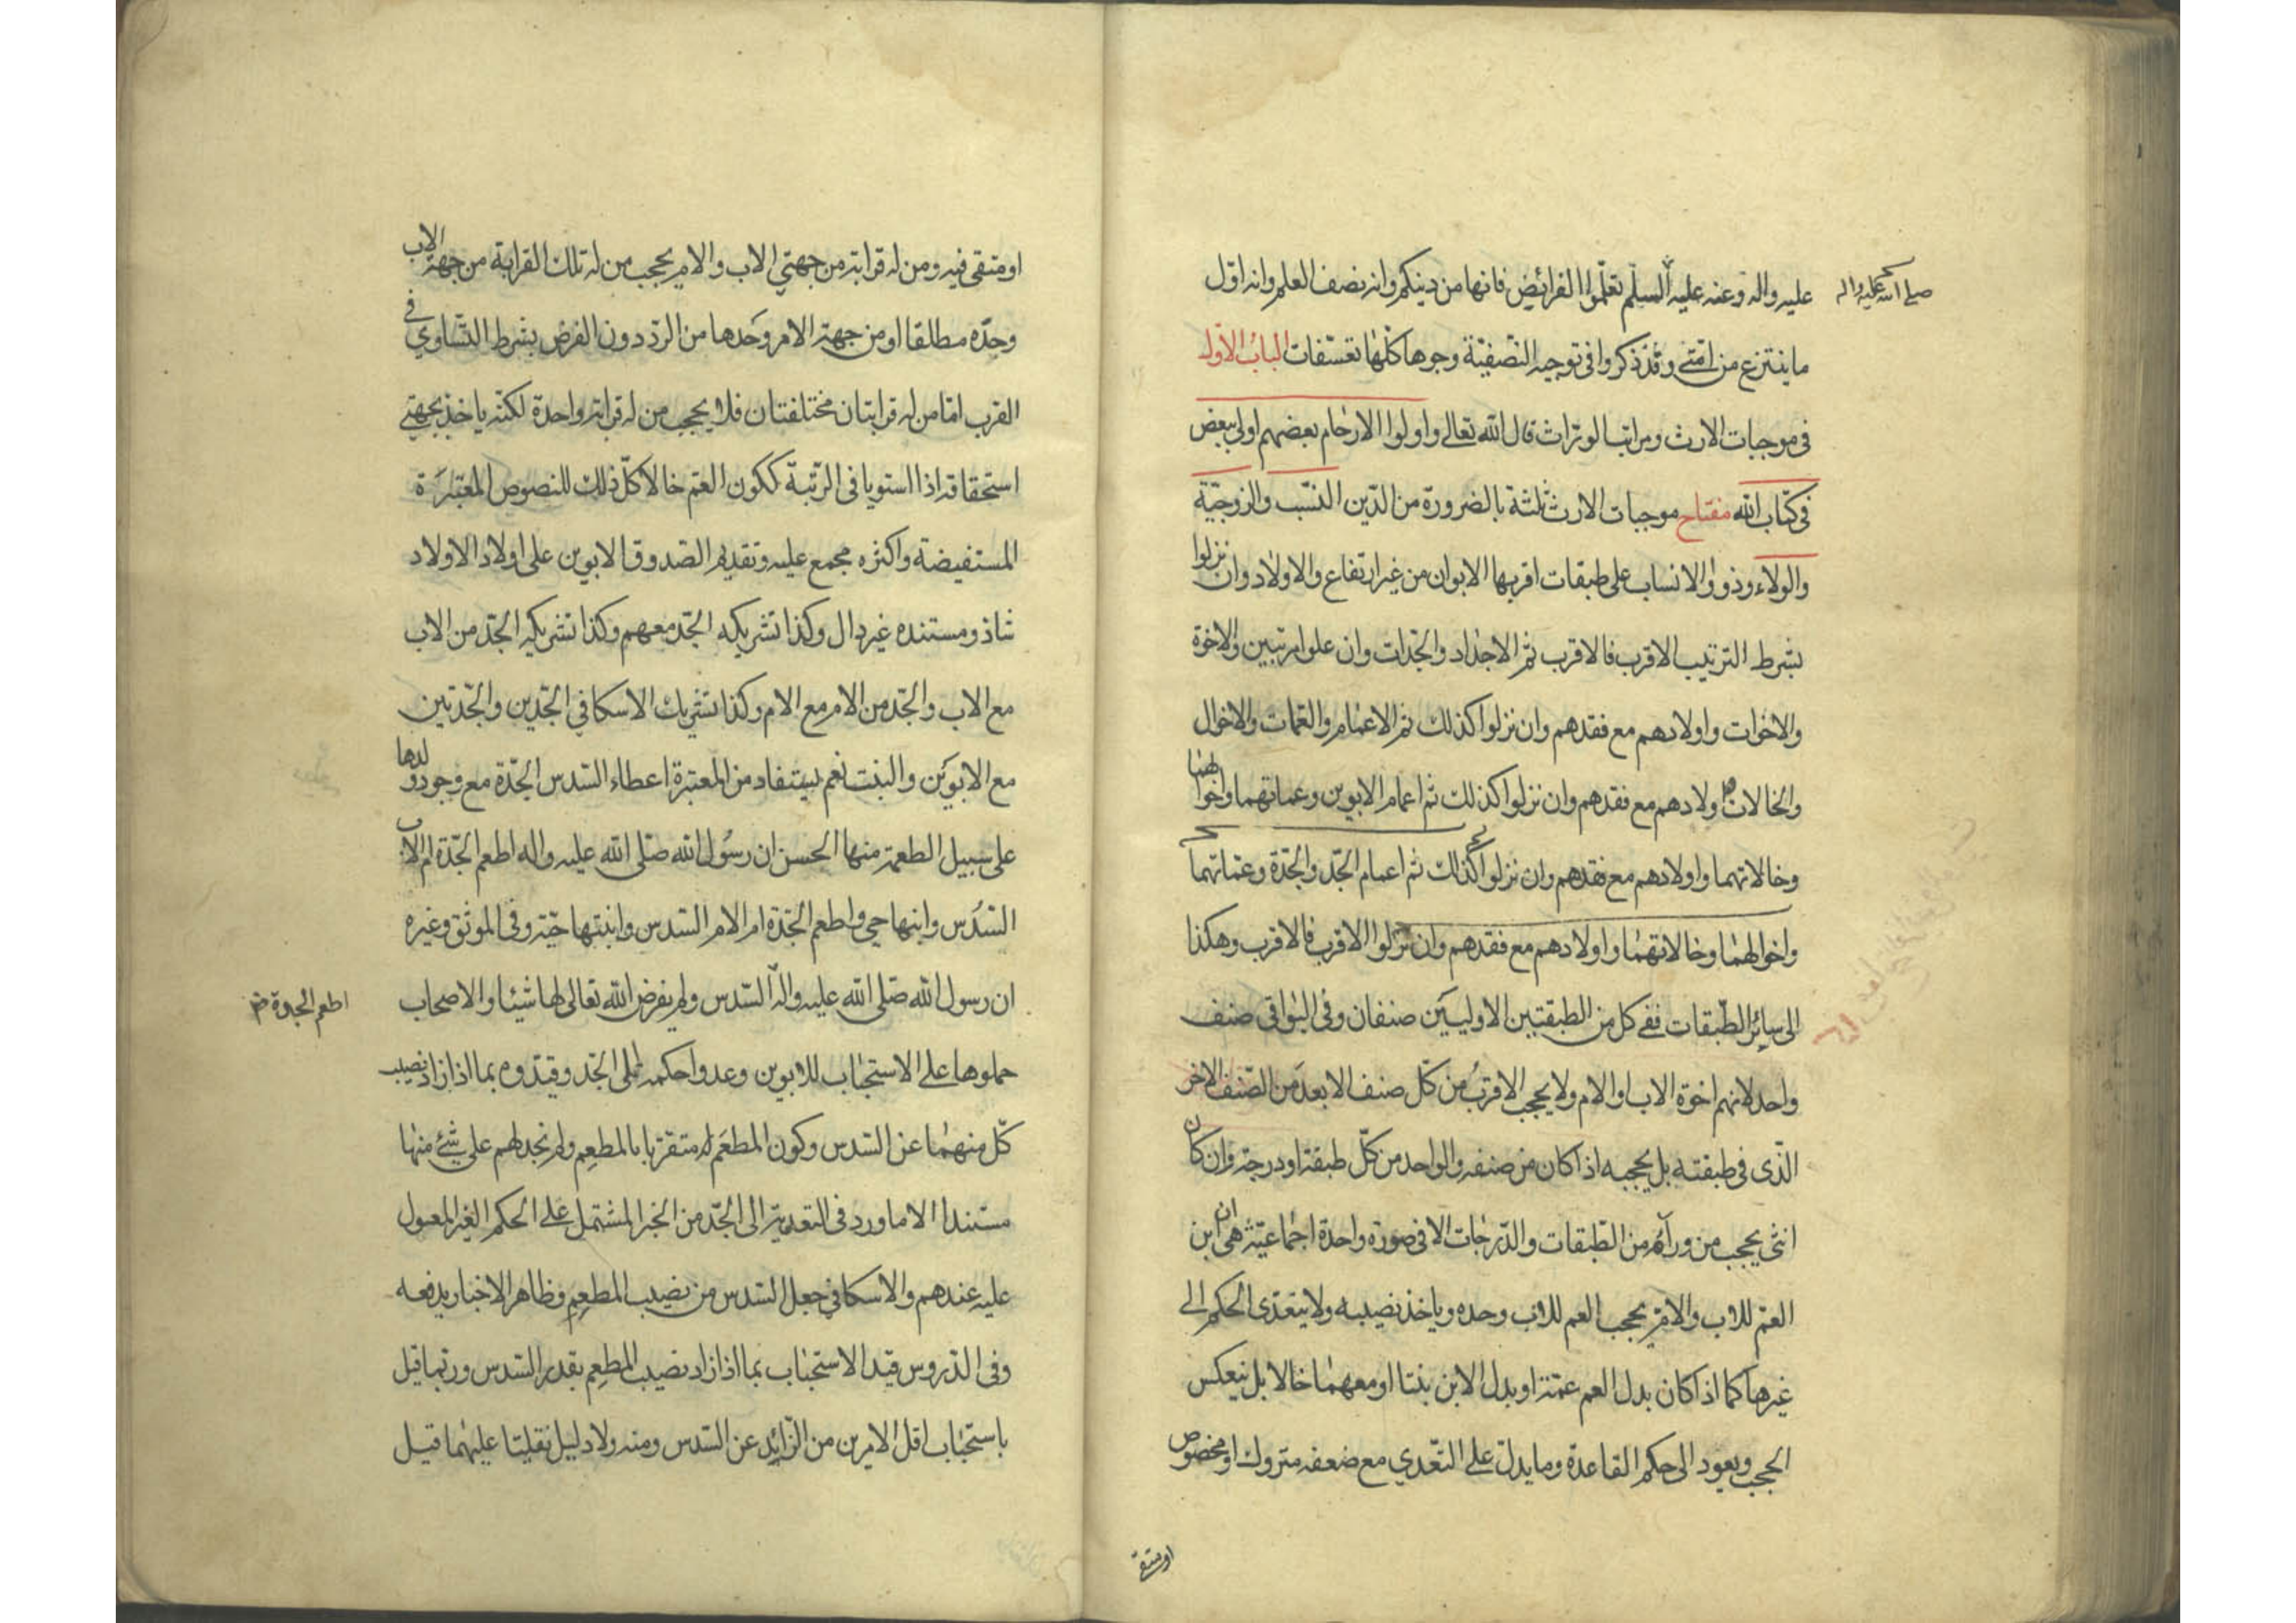 عليه واله وعنه عليه السلم تعلّموا الفرائض فانها من دينكم وانه نصف العلم وانه اوّل
صلى الله عليه واله
ما ينتزع من امّتى وقد ذكروا فى توجيه النّصفيّة وجوها كلّها تعسّفات الباب الاوّل
فى موجبات الارث ومراتب الورّاث قال الله تعالى واولوا الارحام بعضهم اولى ببعض
فى كتاب الله مفتاح موجبات الارث ثلثة بالضرورة من الدّين النّسب والزوجيّة
والولاء وذووا الانساب على طبقات اقربها الابوان من غير ارتفاع والاولاد وان نزلوا
بشرط الترتيب الاقرب فالاقرب ثم الاجداد والجّدات وان علوا مرتبين والاخوة
والاخوات واولادهم مع فقدهم وان نزلوا كذلك ثم الاعمام والعمات والاخوال
والخالات واولادهم مع فقدهم وان نزلوا كذلك ثم اعمام الابوين وعماتهما واخوالهما
وخالاتهما واولادهم مع فقدهم وان نزلوا كذلك ثم اعمام الجّد والجّدة وعمّاتهما
واخوالهما وخالاتهما واولادهم مع فقدهم وان نزلوا الاقرب فالاقرب وهكذا
الى سائر الطّبقات ففى كل من الطبقتين الاوليين صنفان وفى البواقى صنف
واحد لانهم اخوة الاب او الام ولا يحجب الاقرب من كلّ صنف الابعد من الصّنف الاخر
الّذى فى طبقته بل يحجبه اذا كان من صنفه والواحد من كلّ طبقة او درجة وان كان
انثى يحجب من ورآئه من الطّبقات والدّرجات الا فى صورة واحدة اجماعيّة هى ان ابن
العمّ للاب والامّ يحجب العم للاب وحده وياخذ نصيبه ولا يتعدّى الحكم الى
غيرها كما اذا كان بدل العم عمّة او بدل الابن بنتا او معهما خالا بل ينعكس
الحجب ويعود الى حكم القاعدة وما يدلّ على التّعدي مع ضعفه متروك او مخصوص
او متقى
او متقى فيه ومن له قرابة من جهتي الاب والام يحجب من له تلك القرابة من جهة الاب
وحدّه مطلقا او من جهة الام وحدها من الردّ دون الفرض بشرط التّساوي فى
القرب امّا من له قرابتان مختلفتان فلا يحجب من له قرابة واحدة لكنّه ياخذ بجهتى
استحقاقه اذا استويا فى الرّتبة ككون العمّ خالا كلّ ذلك للنصوص المعتبرة
المستفيضة واكثره مجمع عليه وتقديم الصّدوق الابوين على اولاد الاولاد
شاذ ومستنده غير دال وكذا تشريكه الجّد معهم وكذا تشريكه الجّد من الاب
مع الاب والجّد من الام مع الام وكذا تشريك الاسكافي الجّدين والجّدتين
مع الابوين والبنت نعم يستفاد من المعتبرة اعطاء السّدس الجّدة مع وجود ولدها
على سبيل الطعمة منها الحسن ان رسول الله صلّى الله عليه واله اطعم الجّدة ام الاب
السّدس وابنها حي واطعم الجّدة ام الام السّدس وابنتها حيّة وفى الموثق وغيره
ان رسول الله صلّى الله عليه واله السّدس ولم يفرض الله تعالى لها شيئا والاصحاب
اطعم الجدة
حملوها على الاستحباب للابوين وعدوا حكمه الى الجّد وقيّدوه بما اذا زاد نصيب
كلّ منهما عن السّدس وكون المطعَم له متقرّبا بالمطعِم ولم نجد لهم على شئ منها
مستندا الا ما ورد فى التعدية الى الجّد من الخبر المشتمل على الحكم الغير المعمول
عليه عندهم والاسكافي جعل السّدس من نصيب المطعِم وظاهر الاخبار يدفعه
وفى الدّروس قيد الاستحباب بما اذا زاد نصيب المطعِم بقدر السّدس وربّما قيل
باستحباب اقل الامرين من الزّايد عن السّدس ومنه ولا دليل نقليّا عليهما قيل